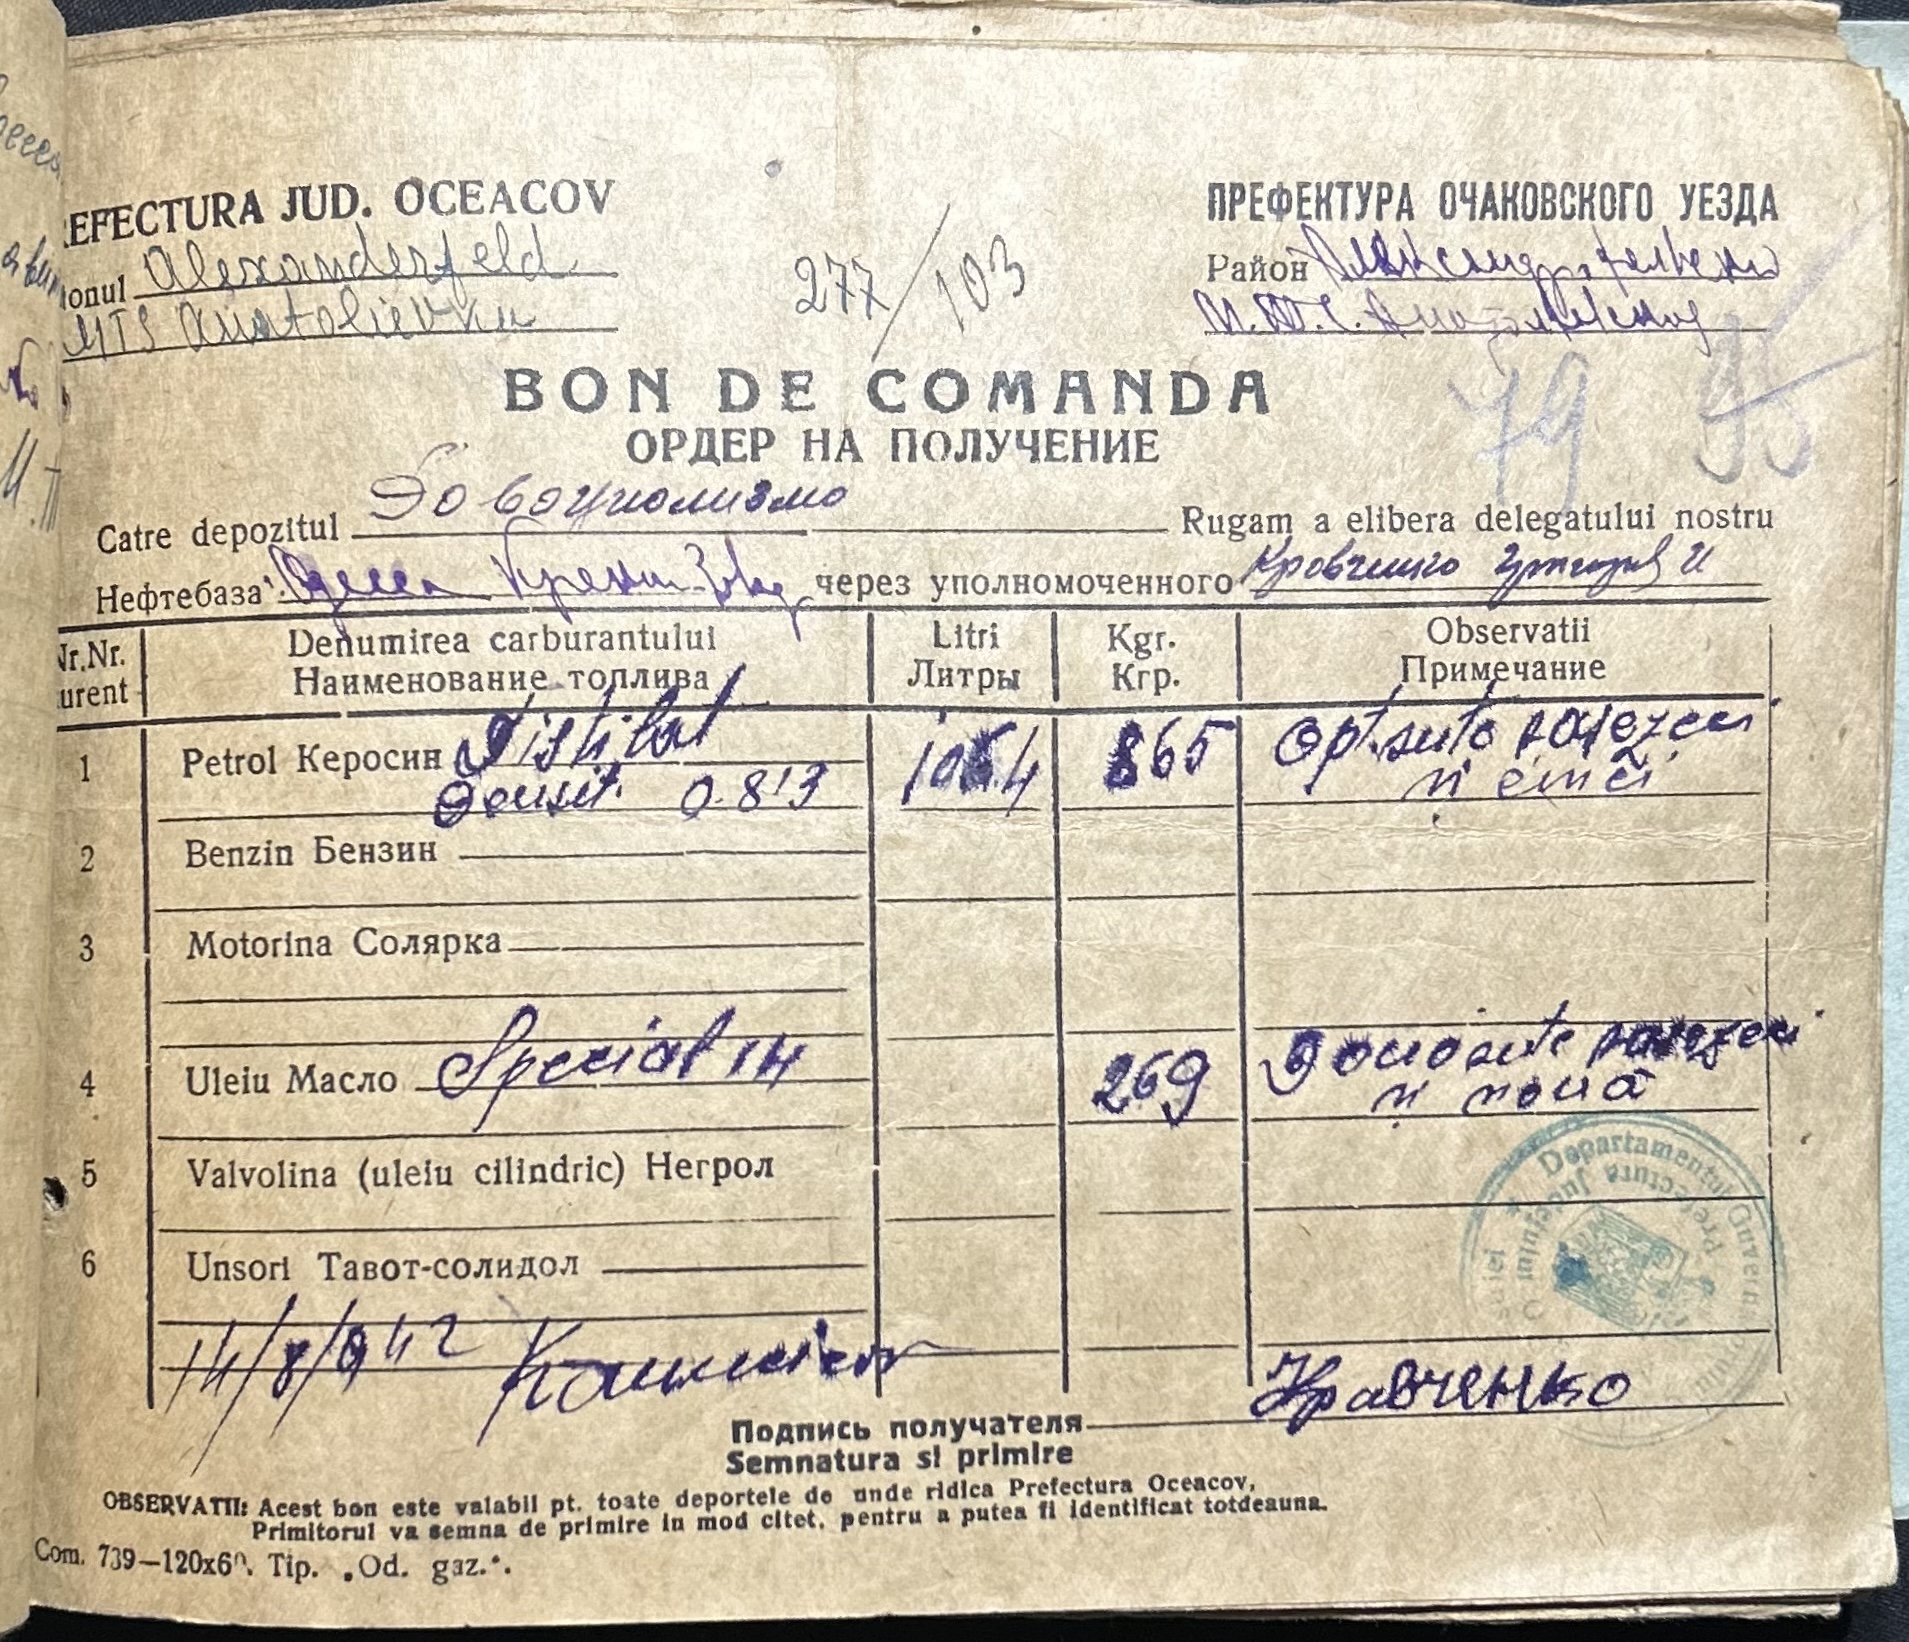 REFECTURA JUD. OCEACOV
ПРЕФЕКТУРА ОЧАКОВСКОГО УЕЗДА
ionul Alexanderfeld
277/103
Район
MTS Anatolievka
М.Т.С.
BON DE COMANDA
79 95
ОРДЕР НА ПОЛУЧЕНИЕ
Catre depozitul Rugam a elibera delegatului nostru
Нефтебаза Одесса через уполномоченного
Nr.Nr. urent
Denumirea carburantului
Наименование топлива
Litri
Литры
Kgr.
Кгр.
Observatii
Примечание
1 Petrol Керосин Distilat 1064 865 Opt sute șaizeci
Densit. 0.813 și cinci
2 Benzin Бензин
3 Motorina Солярка
4 Uleiu Масло Special 14 269 Două sute șaizeci
și nouă
5 Valvolina (uleiu cilindric) Негрол
6 Unsori Тавот-солидол
Departamentului Guvern
Prefectura Județului O
14/8/942
Кравченко
Подпись получателя
Semnatura si primire
OBSERVATII: Acest bon este valabil pt. toate deportele de unde ridica Prefectura Oceacov,
Primitorul va semna de primire in mod citet, pentru a putea fi identificat totdeauna.
Com. 739—120x60. Tip. „Od. gaz.".